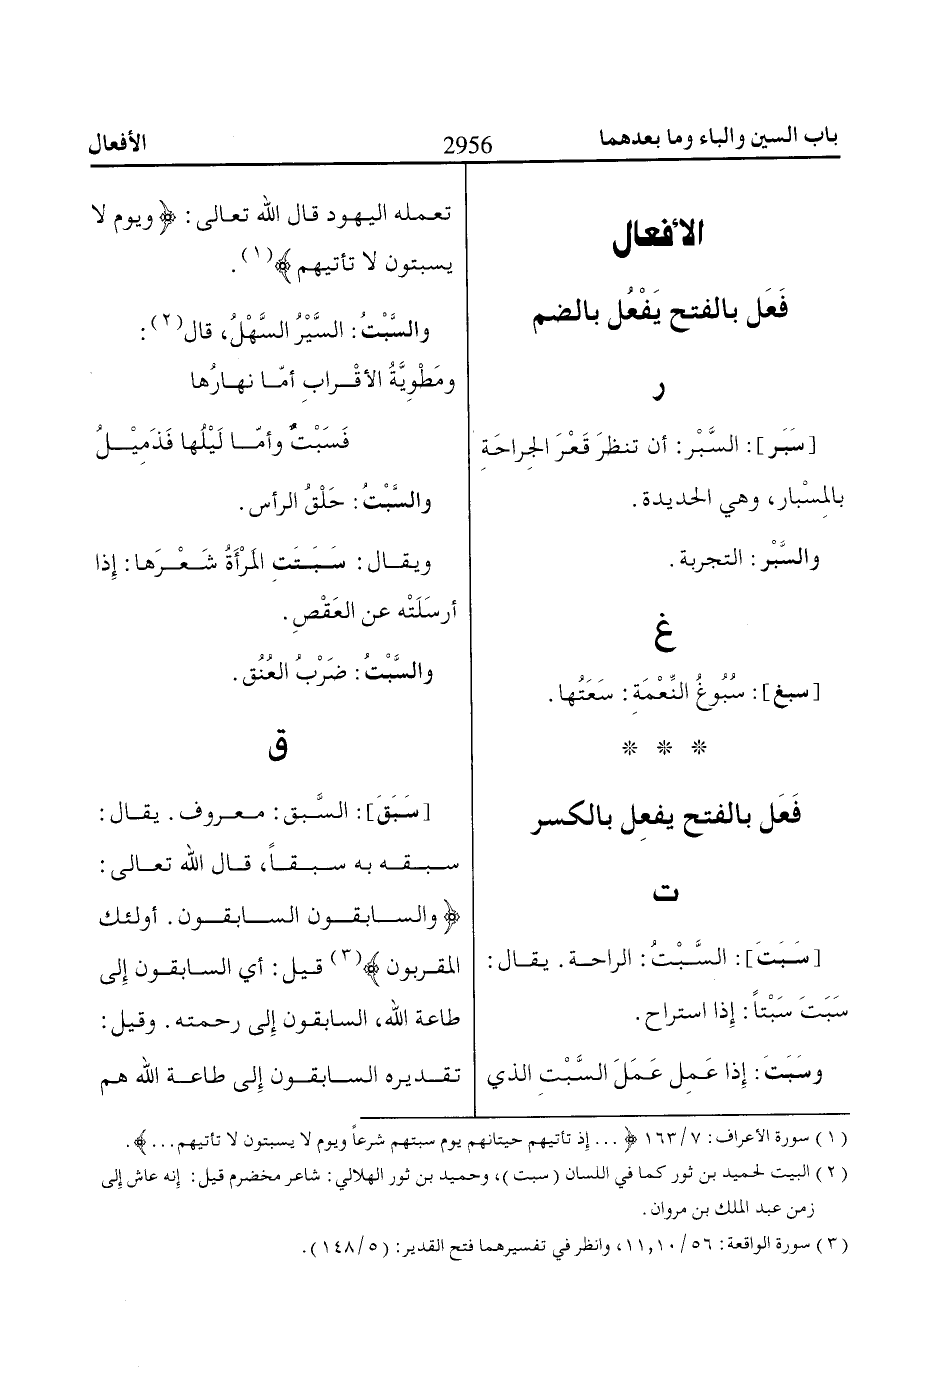 باب السين والباء وما بعدهما
2956
الأفعال
الأفعال
فَعَل بالفتح يَفْعُل بالضم
ر
[سَبَر]: السَّبْر: أن تنظرَ قَعْرَ الجِراحَةِ
بالمِسْبار، وهي الحديدة.
والسَّبْر: التجربة.
غ
[سبغ]: سُبُوغُ النِّعْمَة: سَعَتُها.
* * *
فَعَل بالفتح يفعِل بالكسر
ت
[سَبَتَ]: السَّبْتُ: الراحة. يقال:
سَبَتَ سَبْتاً: إذا استراح.
وسَبَتَ: إذا عَمِل عَمَلَ السَّبْتِ الذي
تعمله اليهود قال الله تعالى: ﴿ويوم لا
يسبتون لا تأتيهم﴾(١).
والسَّبْتُ: السَّيْرُ السَّهْلُ، قال(٢):
ومَطْوِيَّةُ الأقْرابِ أمّا نهارُها
فَسَبْتٌ وأمّا ليْلُها فَذَمِيْلُ
والسَّبْتُ: حَلْقُ الرأس.
ويقال: سَبَتَتِ المَرْأَةُ شَعْرَها: إذا
أرسَلَتْه عن العَقْصِ.
والسَّبْتُ: ضَرْبُ العُنُق.
ق
[سَبَقَ]: السَّبق: معروف. يقال:
سبقه به سبقاً، قال الله تعالى:
﴿والسابقون السابقون. أولئك
المقربون﴾(٣) قيل: أي السابقون إلى
طاعة الله، السابقون إلى رحمته. وقيل:
تقديره السابقون إلى طاعة الله هم
(١) سورة الأعراف: ١٦٣/٧ ﴿... إذ تأتيهم حيتانهم يوم سبتهم شرعاً ويوم لا يسبتون لا تأتيهم...﴾.
(٢) البيت لحميد بن ثور كما في اللسان (سبت)، وحميد بن ثور الهلالي: شاعر مخضرم قيل: إنه عاش إلى
زمن عبد الملك بن مروان.
(٣) سورة الواقعة: ٥٦/ ١١,١٠، وانظر في تفسيرهما فتح القدير: (١٤٨/٥).